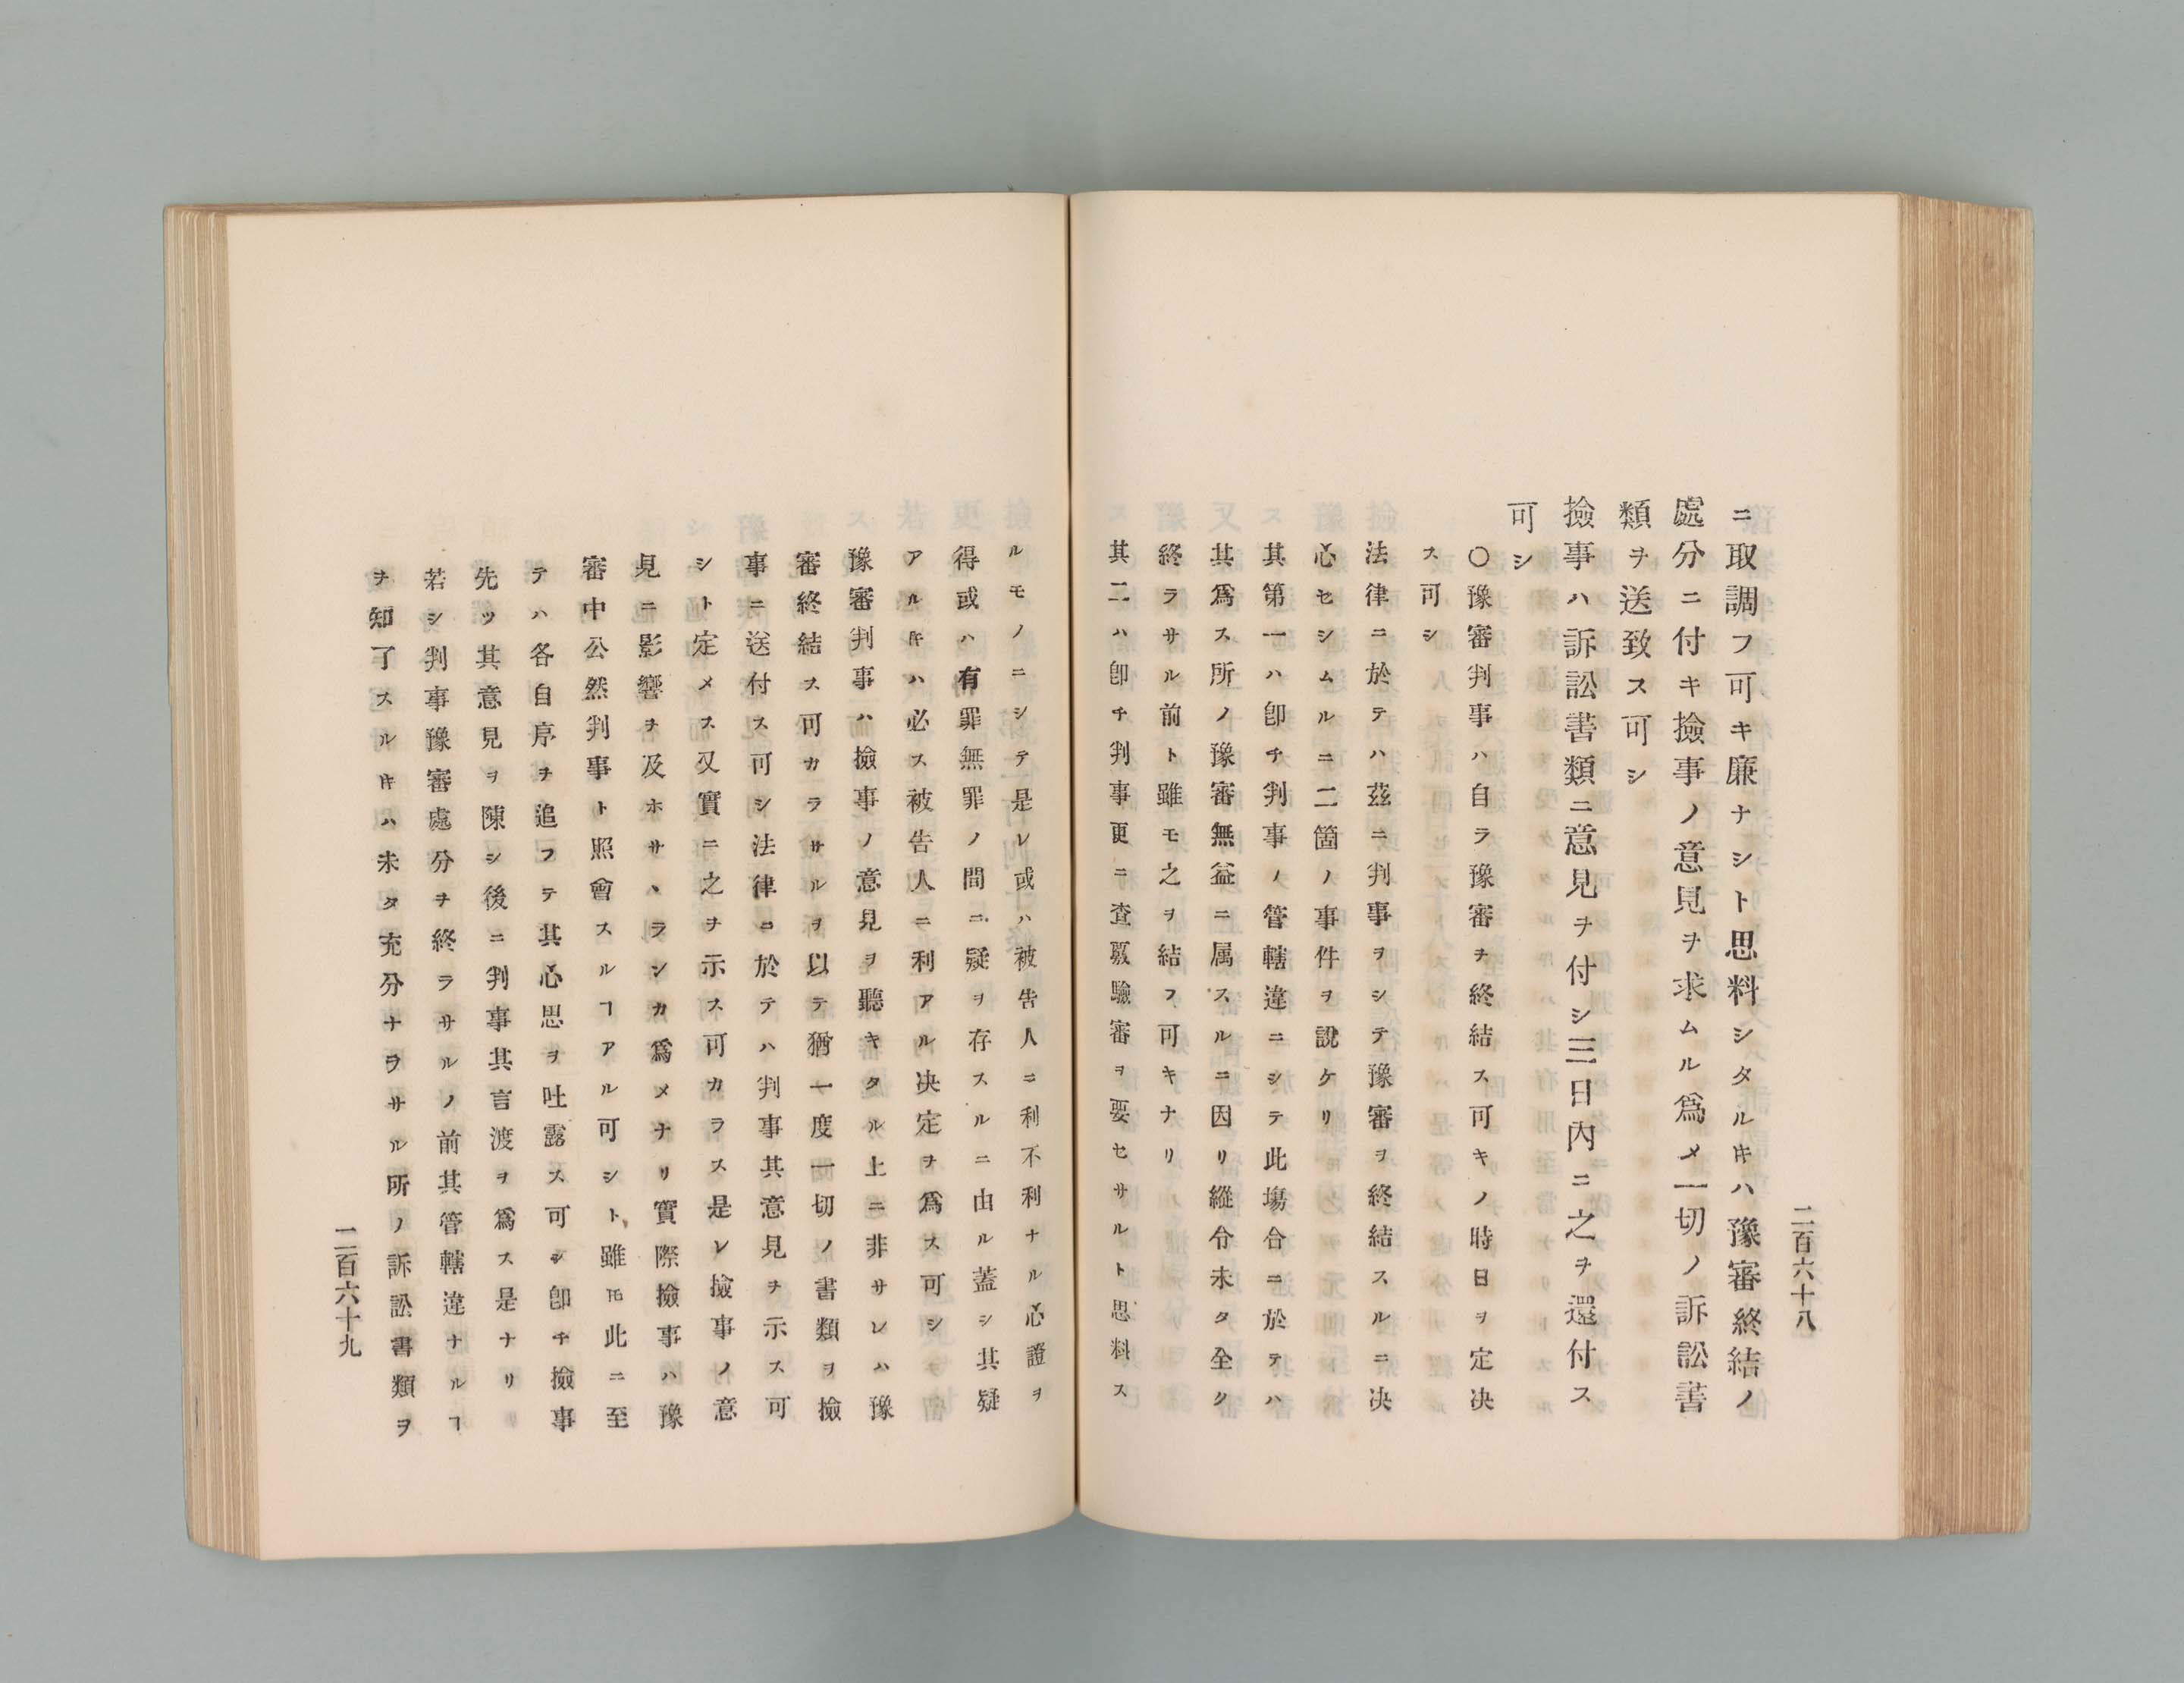 二百六十八
ニ取調フ可キ廉ナシト思料シタルㅑハ豫審終結ノ
處分ニ付キ撿事ノ意見ヲ求ムル爲メ一切ノ訴訟書
類ヲ送致ス可シ
撿事ハ訴訟書類ニ意見ヲ付シ三日內ニ之ヲ還付ス
可シ
〇豫審判事ハ自ラ豫審ヲ終結ス可キノ時日ヲ定决
ス可シ
法律ニ於テハ茲ニ判事ヲシテ豫審ヲ終結スルニ决
心セシムルニ二箇ノ事件ヲ說ケリ
其第一ハ卽チ判事ノ管轄違ニシテ此塲合ニ於テハ
其爲ス所ノ豫審無益ニ属スルニ因リ縱令未タ全ク
終ラサル前ト雖モ之ヲ結フ可キナリ
其二ハ卽チ判事更ニ查覈驗審ヲ要セサルト思料ス
ルモノニシテ是レ或ハ被吿人ニ利不利ナル心證ヲ
得或ハ有罪無罪ノ間ニ疑ヲ存スルニ由ル蓋シ其疑
アルㅑハ必ス被告人ニ利アル决定ヲ爲ス可シ
豫審判事ハ撿事ノ意見ヲ聽キタル上ニ非サレハ豫
審終結ス可カラサルヲ以テ猶一度一切ノ書類ヲ撿
事ニ送付ス可シ法律ニ於テハ判事其意見ヲ示ス可
シト定メス又實ニ之ヲ示ス可カラス是レ撿事ノ意
見ニ影響ヲ及ホサヽランカ爲メナリ實際撿事ハ豫
審中公然判事ト照會スルヿアル可シト雖𪜈此ニ至
テハ各自序ヲ追フテ其心思ヲ吐露ス可シ卽チ撿事
先ツ其意見ヲ陳シ後ニ判事其言渡ヲ爲ス是ナリ
若シ判事豫審處分ヲ終ラサルノ前其管轄違ナルヿ
ヲ知了スルㅑハ未タ充分ナラサル所ノ訴訟書類ヲ
二百六十九